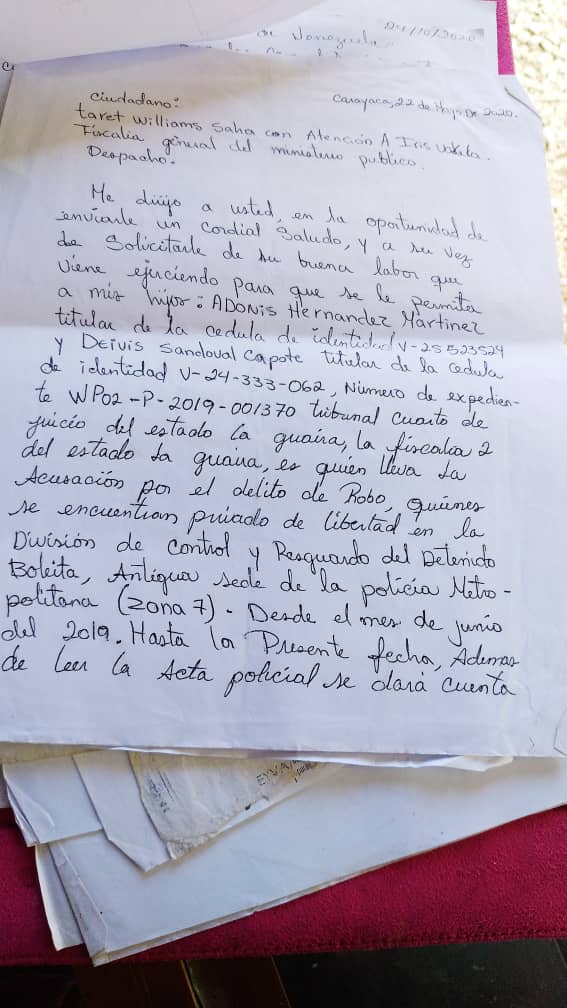 24/10/2020
de Venezuela
Carayaca, 22 de Mayo De 2020.
Ciudadano:
taret Williams Saha con Atención A Iris
Fiscalia general del ministerio publico.
Despacho.
Me dirijo a usted, en la oportunidad de
enviarle un cordial saludo, y a su vez
de Solicitarle de su buena labor que
viene ejerciendo para que se le permita
a mis hijos: ADONIS Hernandez Martinez
titular de la cedula de identidad V-25523524
y Deivis Sandoval Capote titular de la cedula
de identidad V-24-333-062, Número de expedien-
te WP02-P-2019-001370 tribunal Cuarto de
juicio del estado la guaira, la fiscalia 2
del estado la guaira, es quien lleva la
Acusación por el delito de Robo, quienes
se encuentran privado de libertad en la
División de control y Resguardo del Detenido
Boleita, Antigua sede de la policia Metro-
politana (zona 7). Desde el mes de junio
del 2019. Hasta la Presente fecha, Ademas
de leer la Acta policial se dará cuenta